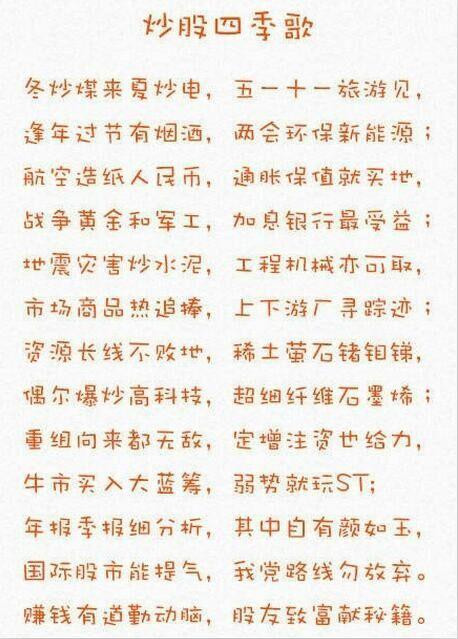 炒股四季歌
冬炒煤来夏炒电，五一十一旅游见，
逢年过节有烟酒，两会环保新能源；
航空造纸人民币，通胀保值就买地，
战争黄金和军工，加息银行最受益；
地震灾害炒水泥，工程机械亦可取，
市场商品热追捧，上下游厂寻踪迹；
资源长线不败地，稀土萤石锗钼锑，
偶尔爆炒高科技，超细纤维石墨烯；
重组向来都无敌，定增注资也给力，
牛市买入大蓝筹，弱势就玩ST；
年报季报细分析，其中自有颜如玉，
国际股市能提气，我党路线勿放弃。
赚钱有道勤动脑，股友致富献秘籍。